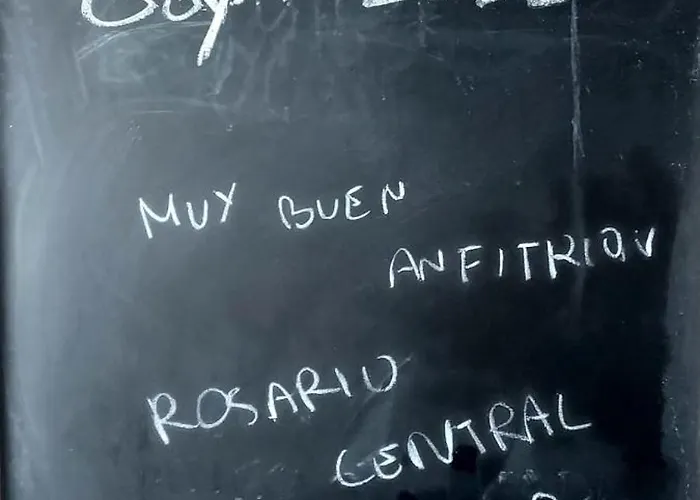 MUY BUEN
ANFITRION
ROSARIO
CENTRAL